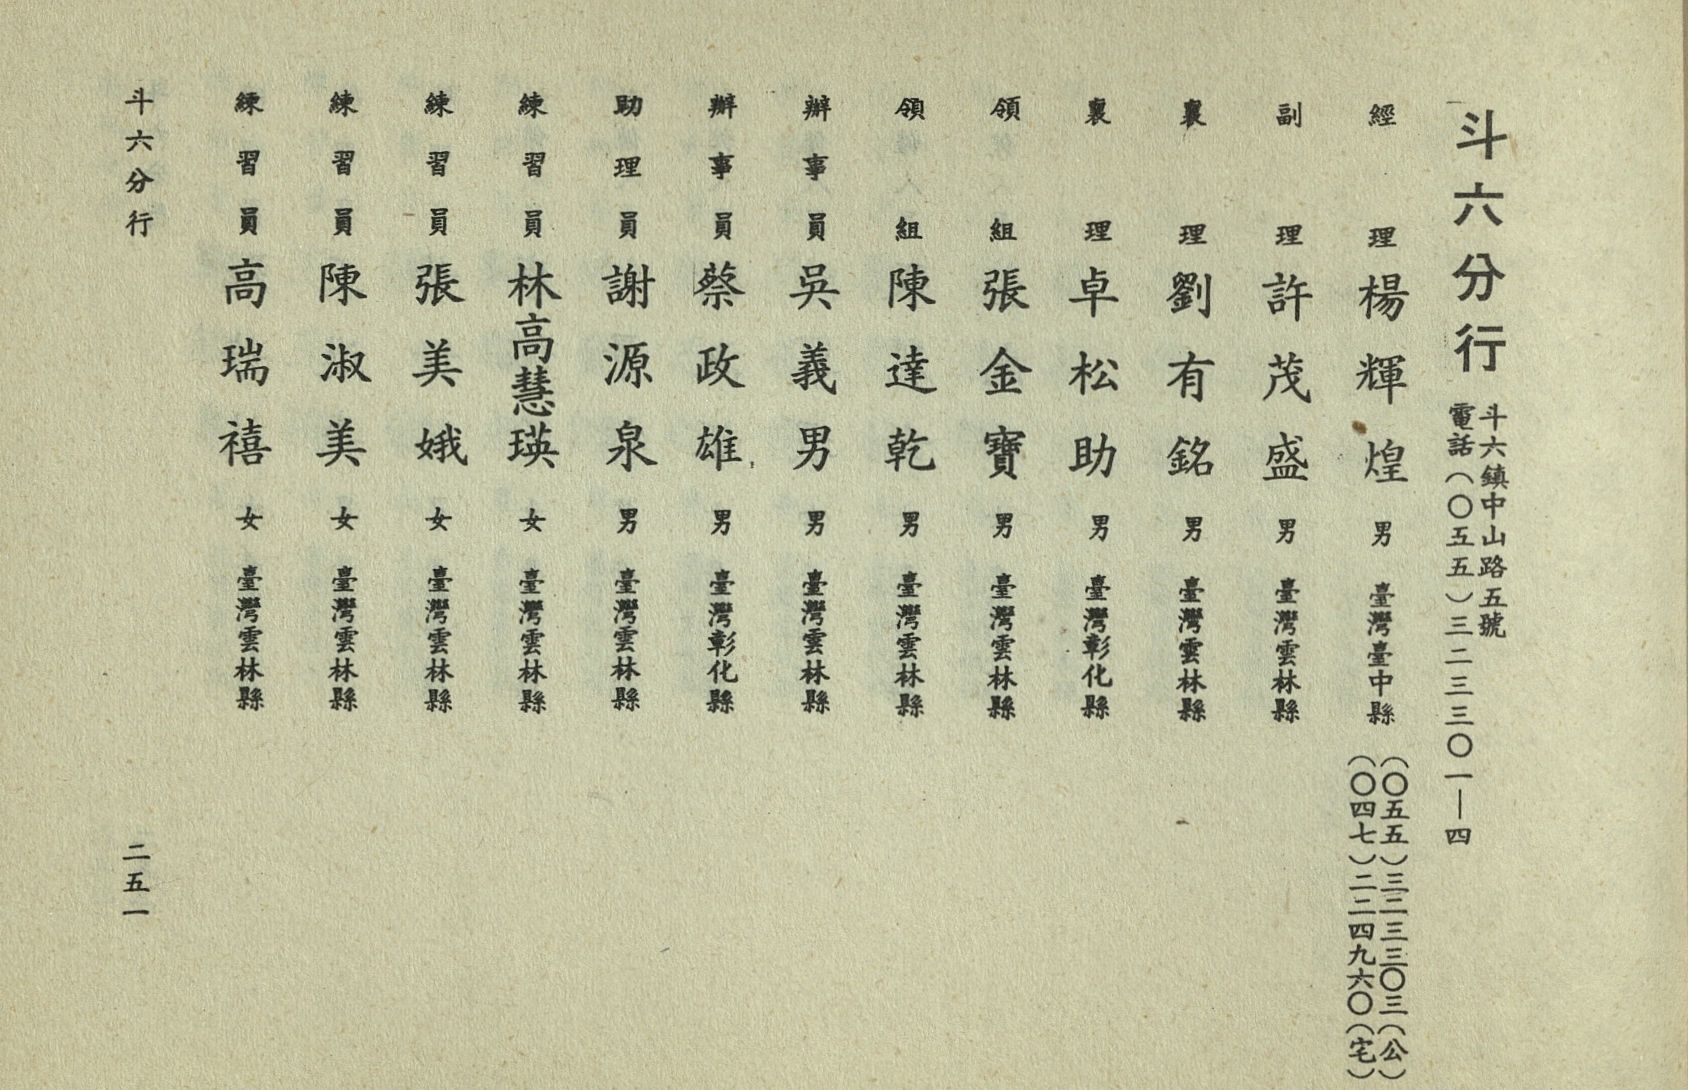 斗六分行
斗六鎮中山路五號
電話（〇五五）三二三三〇一—四
經理 楊輝煌 男 臺灣臺中縣
（〇五五）三二三三〇三（公）
（〇四七）二二四九六〇（宅）
副理 許茂盛 男 臺灣雲林縣
襄理 劉有銘 男 臺灣雲林縣
襄理 卓松助 男 臺灣彰化縣
領組 張金寶 男 臺灣雲林縣
領組 陳達乾 男 臺灣雲林縣
辦事員 吳義男 男 臺灣雲林縣
辦事員 蔡政雄 男 臺灣彰化縣
助理員 謝源泉 男 臺灣雲林縣
練習員 林高慧瑛 女 臺灣雲林縣
練習員 張美娥 女 臺灣雲林縣
練習員 陳淑美 女 臺灣雲林縣
練習員 高瑞禧 女 臺灣雲林縣
斗六分行
二五一